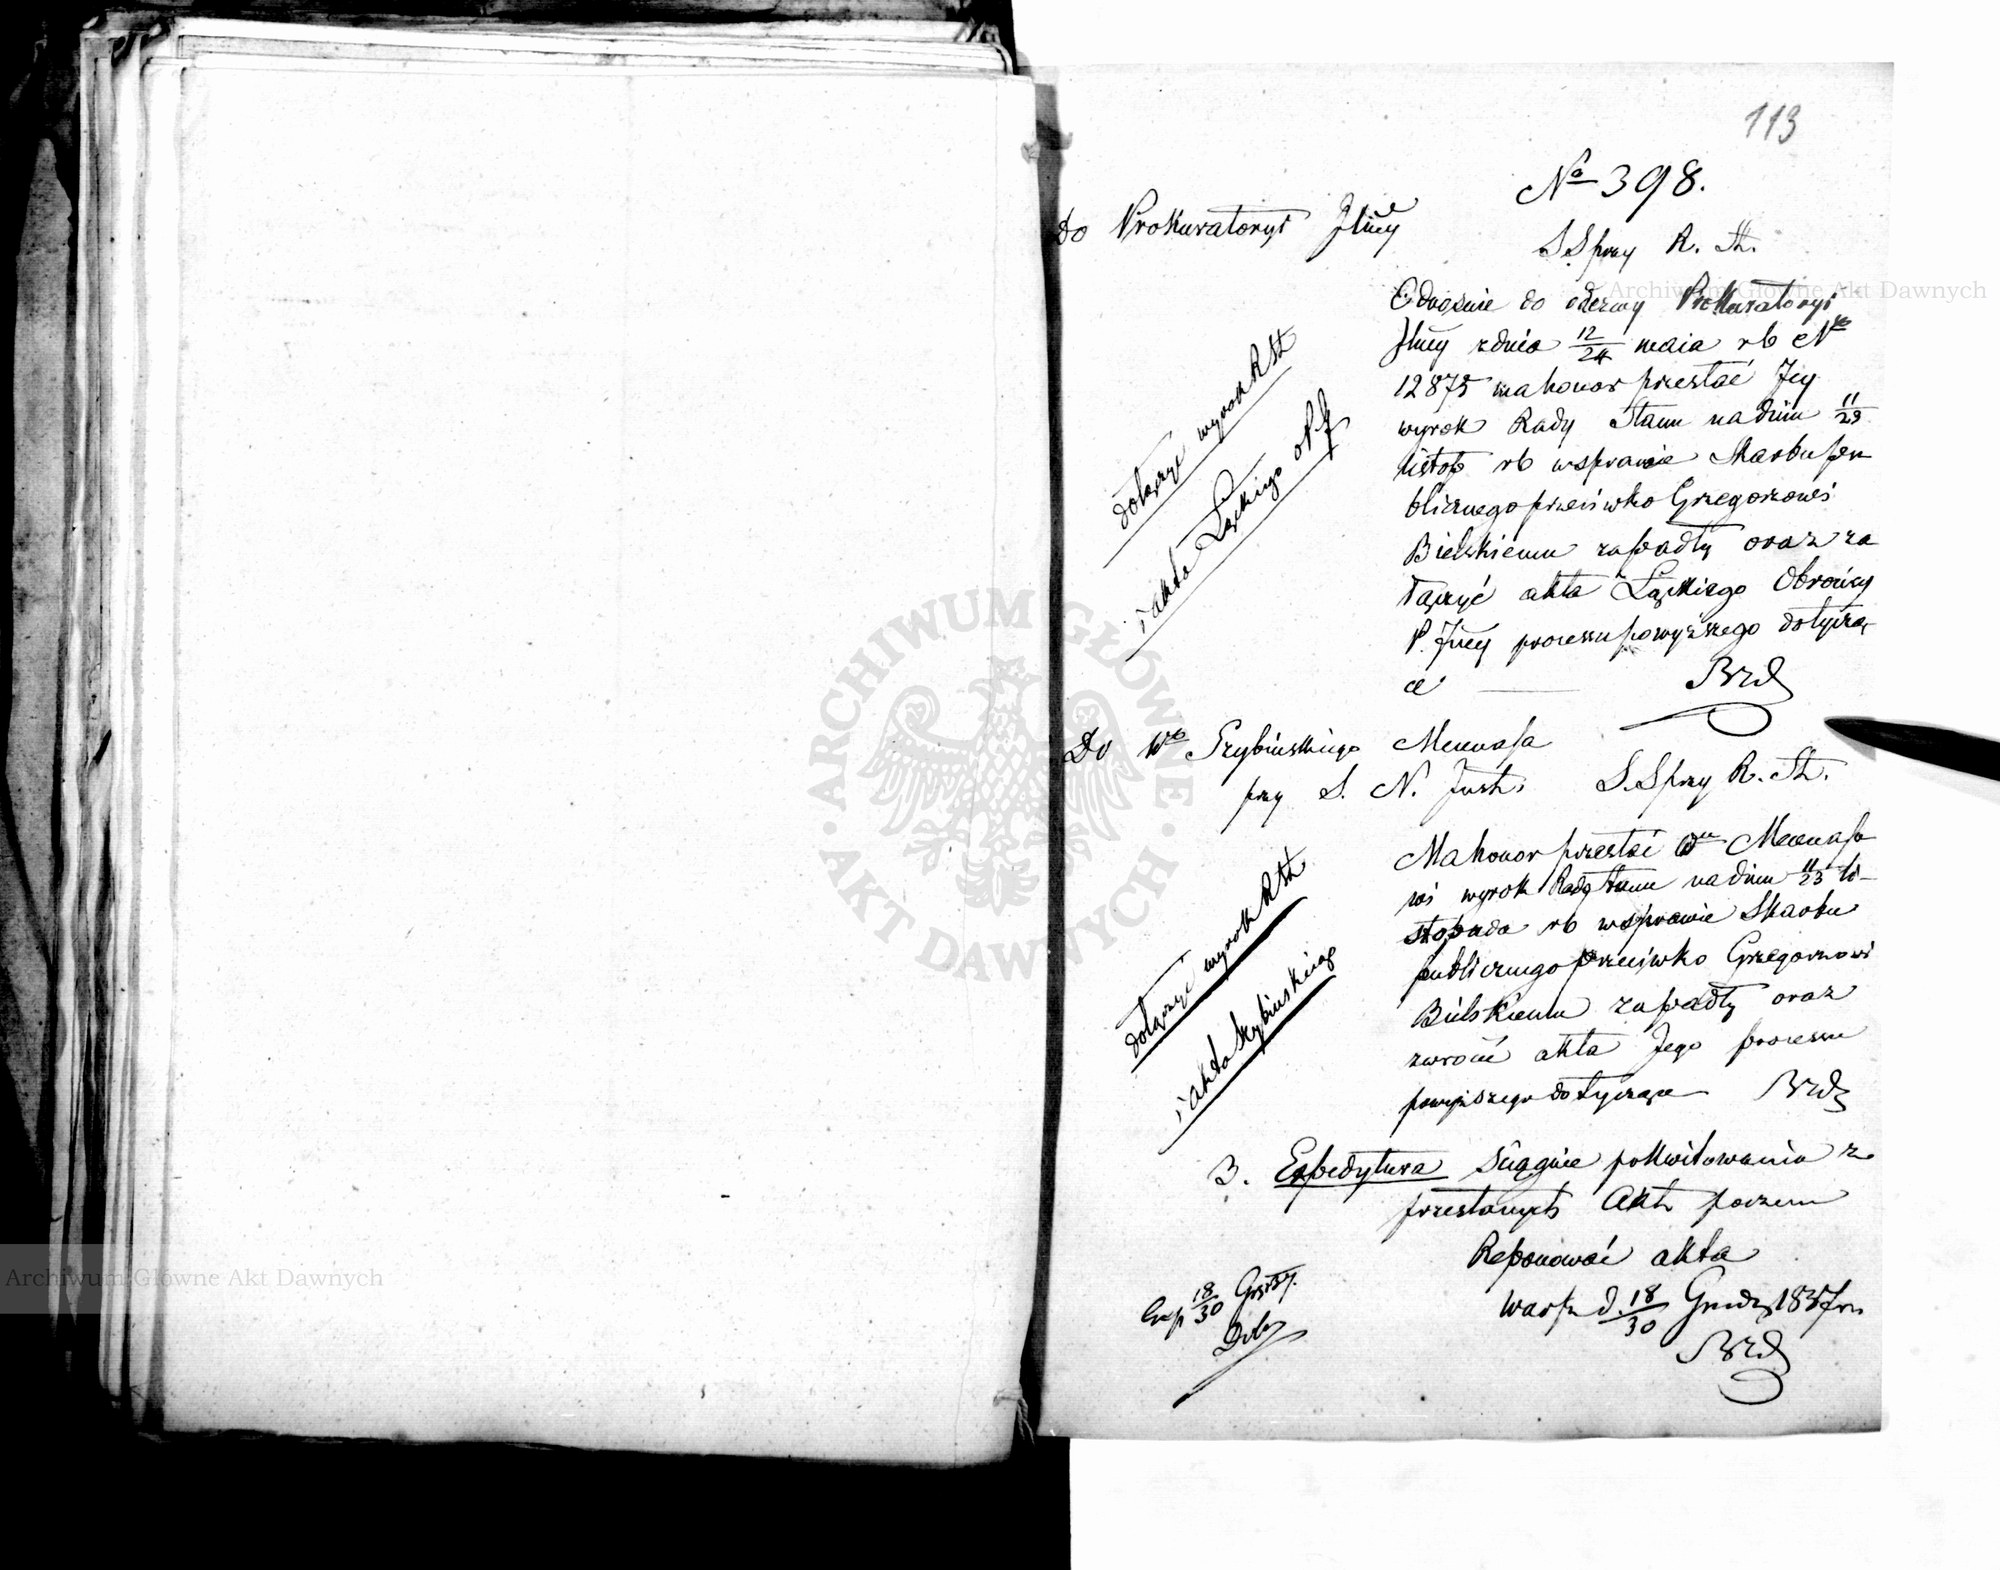 113
No 398.
do Prokuratoryi Jlney
S. S. przy R. St.
Odnośnie do odezwy Prokuratoryi
Jlney z dnia 12/24 maia rb No
12875 ma honor przesłać Jey
wyrok Rady Stanu na dniu 11/23
listop rb w sprawie Skarbu pu
blicznego przeciwko Grzegorzowi
Bielskiemu zapadły oraz za
łączyć akta Łąckiego Obrońcy
P. Jney processu powyższego dotyczą
ce
Brd
dołączyć wyrok R St
i akta Łąckiego O P J
Do Wo Grzybińskiego Mecenasa
przy S. N. Just. S. S przy R. St.
Ma honor przesłać Wu Mecenaso
wi wyrok Rady Stanu na dniu 11/23 li-
stopada rb w sprawie Skarbu
publicznego przeciwko Grzegorzowi
Bielskiemu zapadły oraz
zwrócić akta Jego processu
powyższego dotyczące Brd
dołączyć wyrok R St
i akta
3. Expedytura ściągnie pokwitowania z
przesłanych Akt poczem
Reponować akta
Warsz d. 18/30 Grudz 1837 r.
Brd
Exp 18/30 Grudz 37.
Archiwum Główne Akt Dawnych
Archiwum Główne Akt Dawnych
ARCHIWUM GŁÓWNE
· AKT DAWNYCH ·